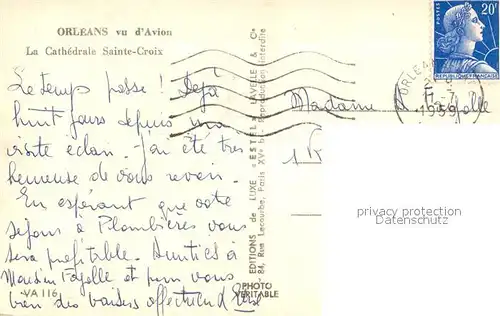 ORLEANS vu d'Avion
La Cathédrale Sainte-Croix
Le temps passe ! Déjà
huit jours depuis ma
visite éclair. J'ai été très
heureuse de vous revoir.
En espérant que votre
séjour à Plombières vous
sera profitable. Amitiés à
Monsieur Fayolle et pour vous
bien des baisers affectueux
VA 116
EDITIONS de LUXE "ESTEL" LAVELLE & Cie
84, Rue Lecourbe, Paris XVe Reproduction interdite
PHOTO
VERITABLE
Madame Fayolle
20F
REPUBLIQUE FRANÇAISE
ORLEANS
1959
privacy protection
VERPIXELUNG